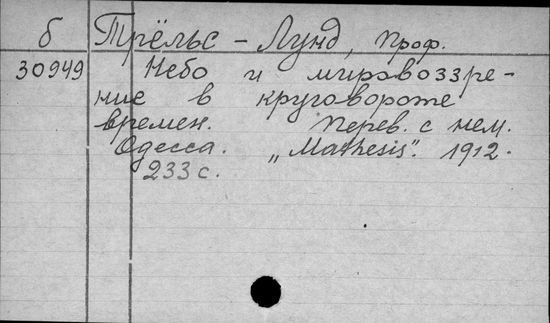 б Трёльс - Лунд, проф.
30949 Небо и мировоззре-
ние в круговороте
времен. Перев. с нем.
Одесса. „Mathesis". 1912.
233 с.